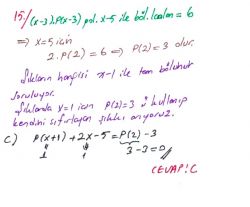 15./ (x-3).P(x-3) pol. x-5 ile böl. kalan = 6
⇒ x=5 için
2.P(2) = 6 ⇒ P(2) = 3 olur.
Şıkların hangisi x-1 ile tam bölünür
soruluyor.
Şıklarda x=1 için P(2)=3 ü kullanıp
kendini sıfırlayan şıkkı arıyoruz.
C) P(x+1) + 2x-5 = P(2) - 3
1 1 3-3=0
CEVAP: C